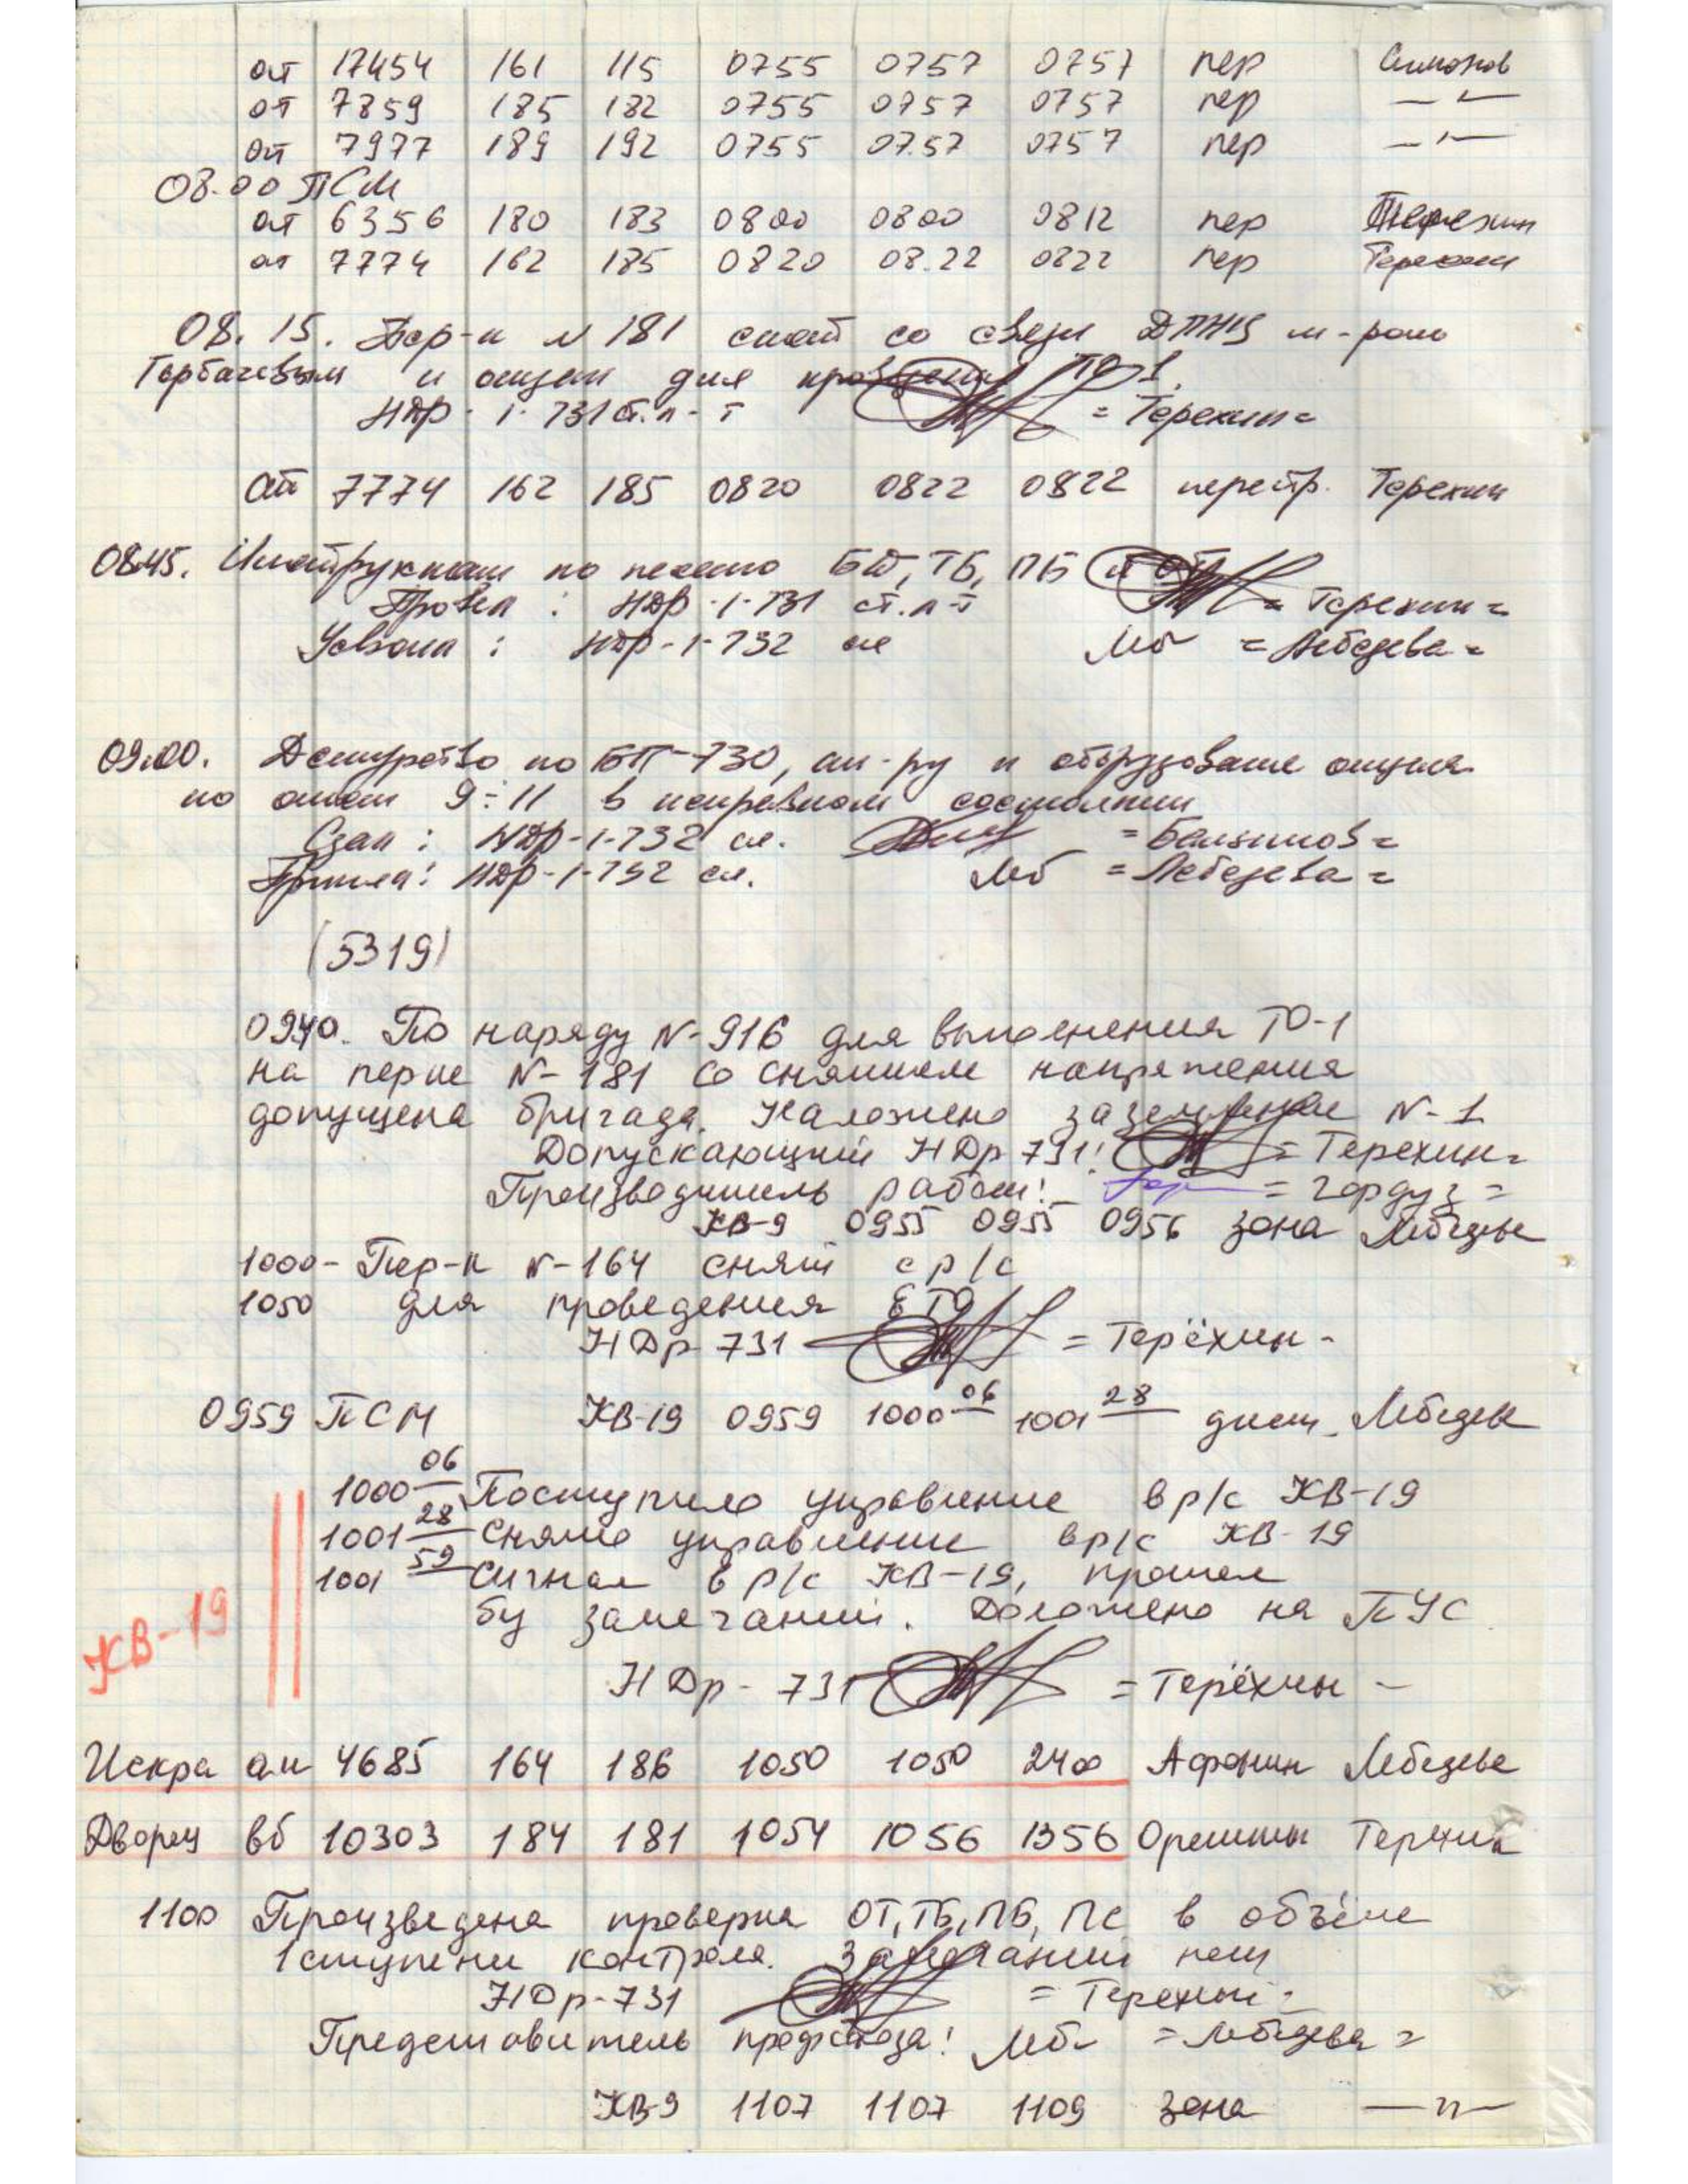 от 17454 161 115 0755 0757 0757 пер Симонов
от 7859 185 182 0755 0757 0757 пер —"—
от 7977 189 192 0755 07.57 0757 пер —"—
08.00 ПСМ
от 6356 180 183 0800 0800 0812 пер Терехин
от 7774 162 185 0820 08.22 0822 пер Терехин
08.15. Пер-к N 181 снят со связи ДПНЦ м-ром
Горбачевым и для ТО-1.
НДр-1-731 ст.л-т = Терехин =
от 7774 162 185 0820 0822 0822 перестр. Терехин
0845. Инструктаж по БТ, ТБ, ПБ
Провел: НДр-1-731 ст.л-т = Терехин =
Усвоил: НДр-1-732 Леб = Лебедева =
09.00. Дежурство по БП-730, ап-ру и оборудование
по описи 9÷11 в исправном состоянии
Сдал: НДр-1-732 сл.
Приняла: НДр-1-732 сл. Леб = Лебедева =
(5319)
0940. По наряду N-916 для выполнения ТО-1
на пер-ке N-181 со снятием напряжения
допущена бригада. Наложено заземление N-1
Допускающий НДр 731: = Терехин =
Производитель работ: = Гордуз =
ЖВ-9 0955 0955 0956 зона Лебедева
1000- Пер-к N-164 снят с р/с
1050 для проведения ЕТО
НДр-731 = Терёхин -
0959 ПСМ ЖВ-19 0959 1000 06 1001 28 дист. Лебедева
1000 06 Поступило управление в р/с ЖВ-19
1001 28 Снято управление в р/с ЖВ-19
1001 59 Сигнал в р/с ЖВ-19, прошел
бу замечаний. Доложено на ПУС
ЖВ-19
НДр-731 = Терёхин -
Искра ал 4685 164 186 1050 1050 2400 Афонин Лебедева
Дворец вб 10303 184 181 1054 1056 1356 Терехин
1100 Произведена проверка ОТ, ТБ, ПБ, ПС в объёме
1 ступени контроля. Замечаний нет
НДр-731 = Терехин =
Представитель профсоюза: Леб = Лебедева =
ЖВ-9 1107 1107 1109 зона —"—